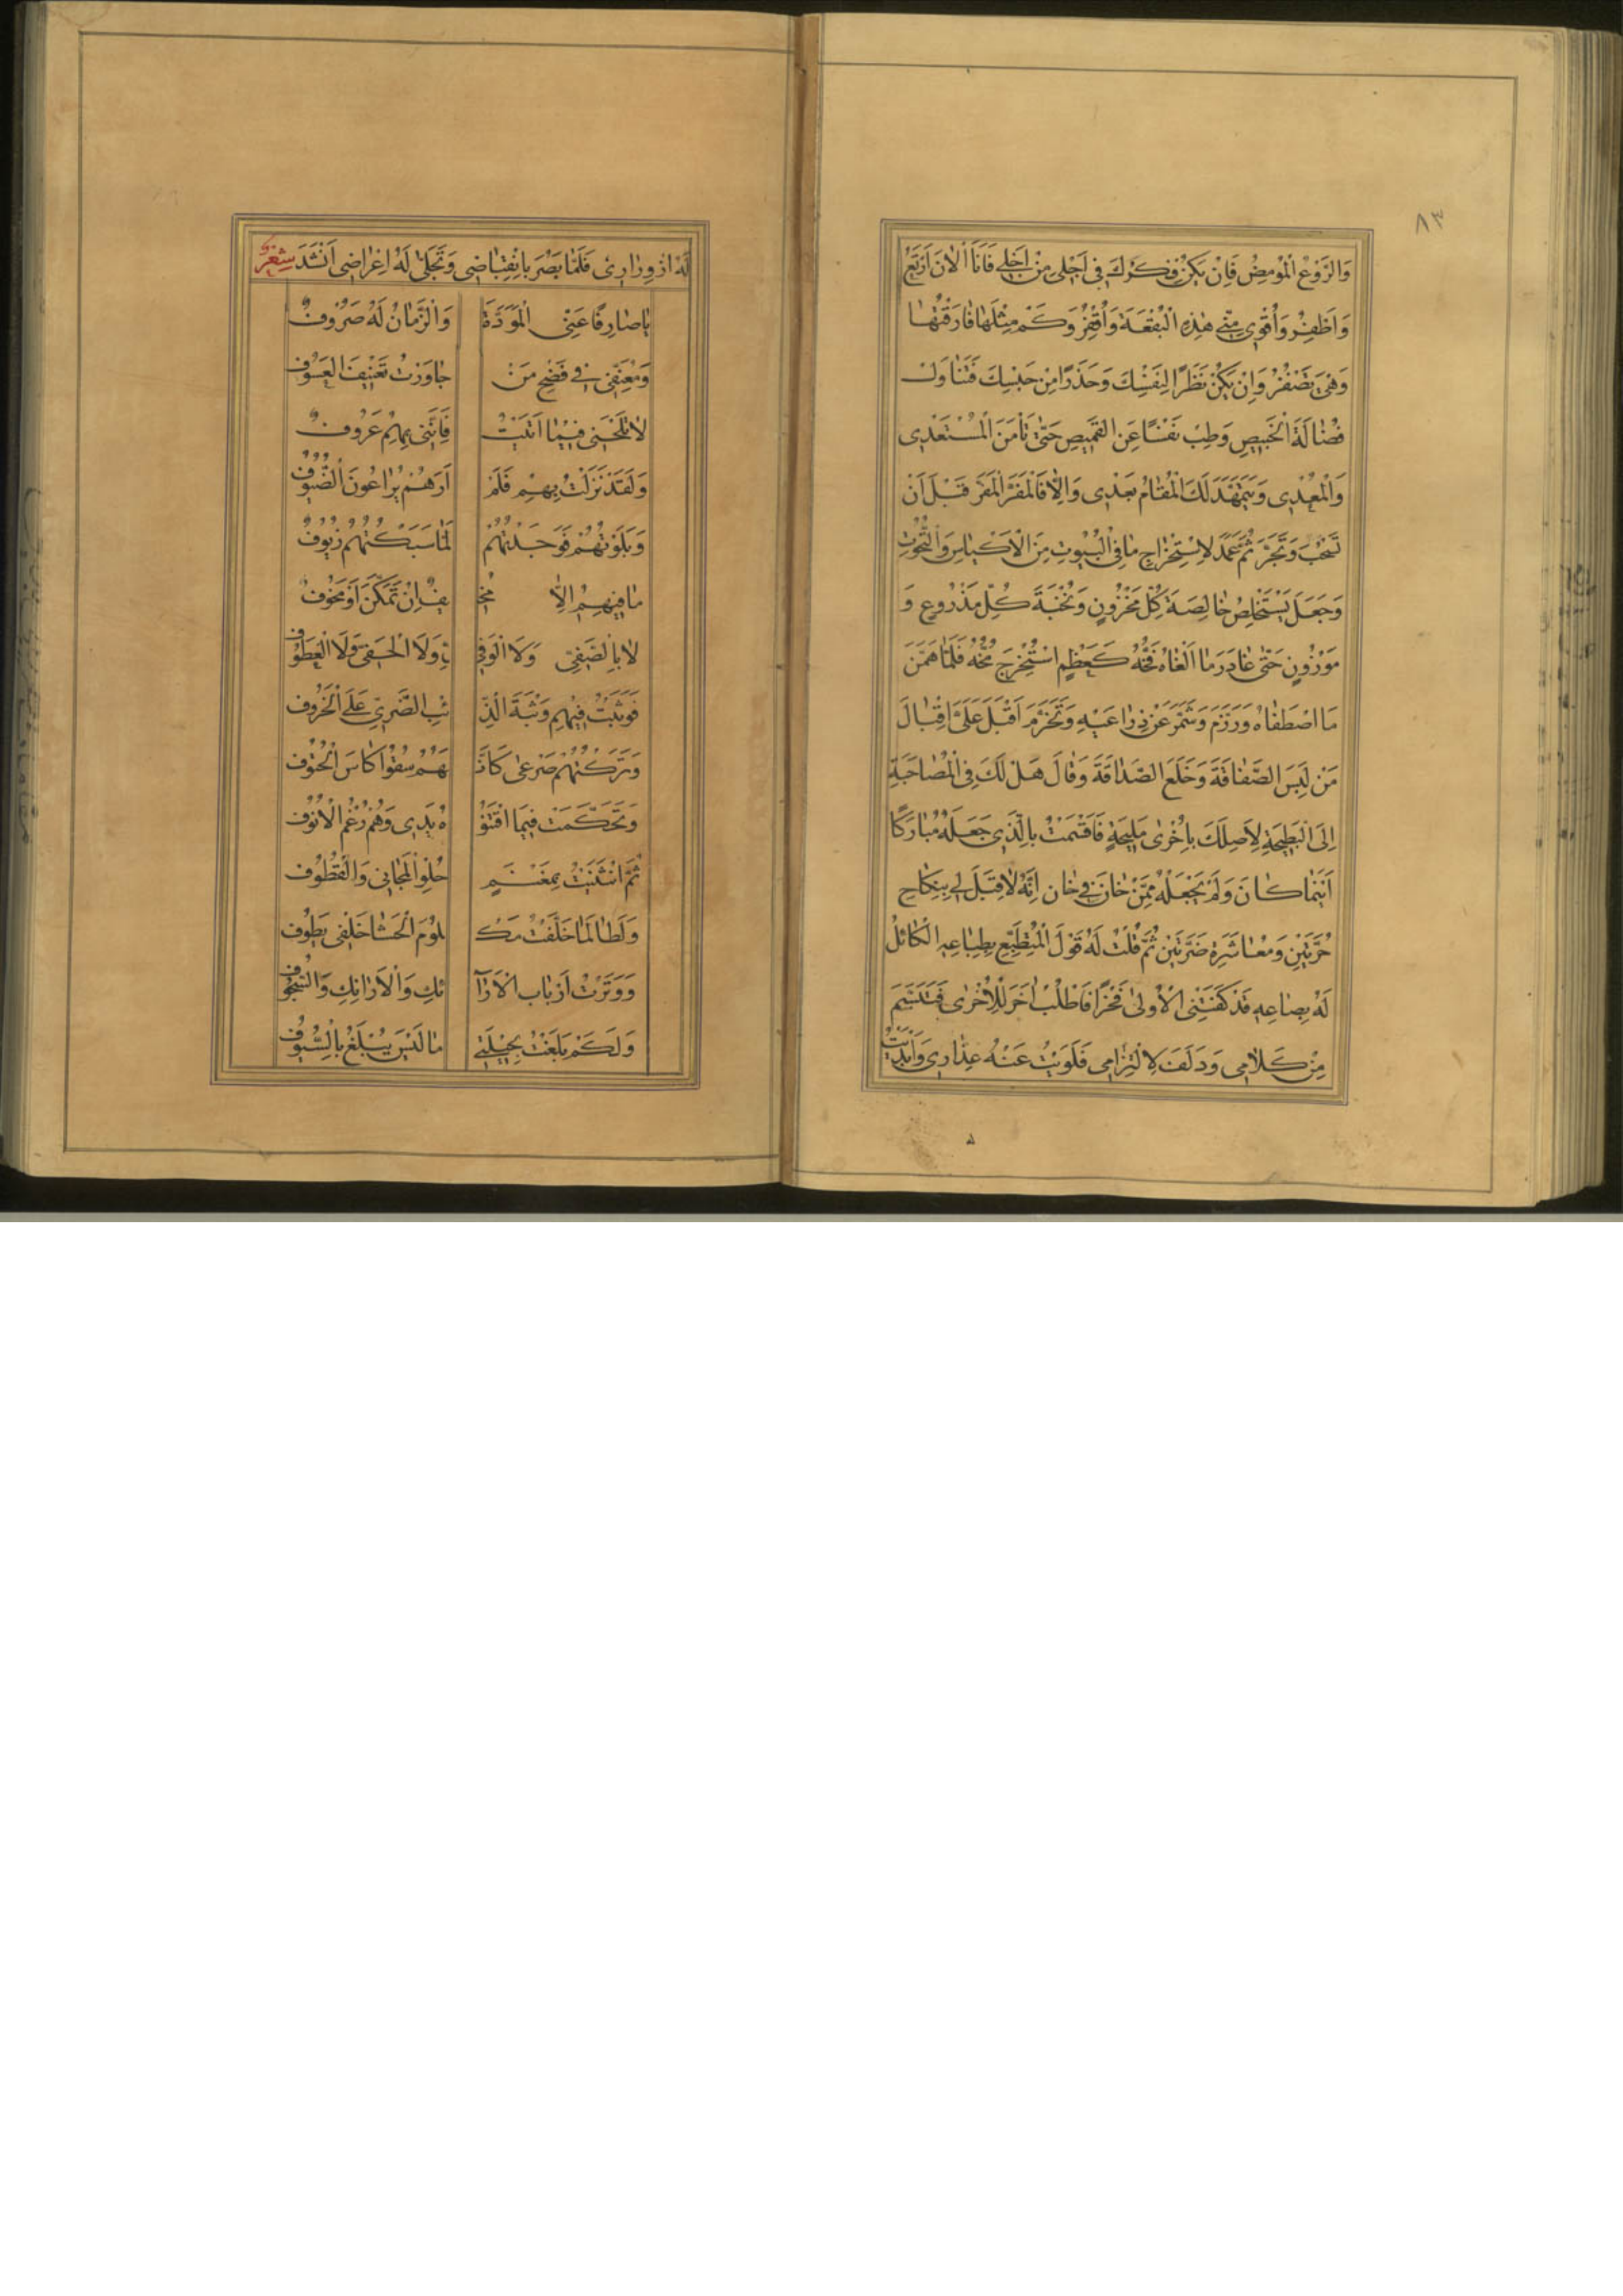 ٨٣
وَالرَّوْعُ الْمُومِضُ فَاِنْ يَكُنْ فِكْرُكَ فِى اَجْلِى مِنْ اَجْلِى فَاَنَا الْاٰنَ اَرْتَعُ
وَاَطْفِرُ وَاُقْوِى مِنِّى هٰذِهِ الْبُقْعَةَ وَاُقْفِرُ وَكَمْ مِثْلِهَا فَارَقْتُهَا
وَهْىَ تَصْفِرُ وَاِنْ يَكُنْ نَظَرًا لِنَفْسِكَ وَحَذَرًا مِنْ حَبْسِكَ فَتَنَاوَلْ
فُضَالَةَ الْخَبِيصِ وَطِبْ نَفْسًا عَنِ الْقَمِيصِ حَتّٰى تَأْمَنَ الْمُسْتَعْدِى
وَالْمُعْدِى وَيَتَمَهَّدَ لَكَ الْمُقَامُ بَعْدِى وَاِلَّا فَالْمَفَرَّ الْمَفَرَّ قَبْلَ اَنْ
تُسْحَبَ وَتُجَرَّ ثُمَّ عَمَدَ لِاسْتِخْرَاجِ مَا فِى الْبُيُوتِ مِنَ الْاَكْيَاسِ وَالتُّخُوتِ
وَجَعَلَ يَسْتَخْلِصُ خَالِصَةَ كُلِّ مَخْزُونٍ وَنُخْبَةَ كُلِّ مَذْرُوعٍ وَ
مَوْزُونٍ حَتّٰى غَادَرَ مَا اَلْغَاهُ فَخُّهُ كَعَظْمٍ اسْتُخْرِجَ مُخُّهُ فَلَمَّا هَمَّنَ
مَا اصْطَفَاهُ وَرَزَمَ وَشَمَّرَ عَنْ ذِرَاعَيْهِ وَتَحَزَّمَ اَقْبَلَ عَلَىَّ اِقْبَالَ
مَنْ لَبِسَ الصَّفَاقَةَ وَخَلَعَ الصَّدَاقَةَ وَقَالَ هَلْ لَكَ فِى الْمُصَاحَبَةِ
اِلَى الْبَطِيحَةِ لِاَصِلَكَ بِاُخْرٰى مَلِيحَةٍ فَاَقْسَمْتُ بِالَّذِى جَعَلَهُ مُبَارَكًا
اَيْنَمَا كَانَ وَلَمْ يَجْعَلْهُ مِمَّنْ خَانَ فِى خَانٍ اِنَّهُ لَا قِبَلَ لِى بِنِكَاحِ
حُرَّتَيْنِ وَمُعَاشَرَةِ ضَرَّتَيْنِ ثُمَّ قُلْتُ لَهُ قَوْلَ الْمُتَطَبِّعِ بِطِبَاعِهِ الْكَائِلُ
لَهُ بِصَاعِهِ قَدْ كَفَتْنِى الْاُولٰى فَخْرًا فَاطْلُبْ اٰخَرَ لِلْاُخْرٰى فَتَبَسَّمَ
مِنْ كَلَامِى وَدَلَفَ لِالْتِزَامِى فَلَوَيْتُ عَنْهُ عِذَارِى وَاَبْدَيْتُ
لَهُ ازْوِرَارِى فَلَمَّا بَصُرَ بِانْقِبَاضِى وَتَجَلّٰى لَهُ اِعْرَاضِى اَنْشَدَ شِعْرٌ
يَا صَارِفًا عَنِّى الْمَوَدَّةَ وَالزَّمَانُ لَهُ صُرُوفٌ
وَمُعَنِّفِى فِى فَضْحِ مَنْ جَاوَرْتُ تَعْنِيفَ الْعَسُوفِ
لَا تَلْحَنِى فِيمَا اَتَيْتُ فَاِنَّنِى بِهِمْ عَرُوفٌ
وَلَقَدْ نَزَلْتُ بِهِمْ فَلَمْ اَرَهُمْ يُرَاعُونَ الضُّيُوفَ
وَبَلَوْتُهُمْ فَوَجَدْتُهُمْ لَمَّا سَبَكْتُهُمْ زُيُوفٌ
مَا فِيهِمْ اِلَّا مُخِـ يفٌ اِنْ تَمَكَّنَ اَوْ مَخُوفٌ
لَا بِالصَّفِىِّ وَلَا الْوَفِىِّ وَلَا الْحَفِىِّ وَلَا الْعَطُوفِ
فَوَثَبْتُ فِيهِمْ وَثْبَةَ الذِّ ئْبِ الضَّرِىِّ عَلَى الْخَرُوفِ
وَتَرَكْتُهُمْ صَرْعٰى كَاَنَّـ هُمْ سُقُوا كَاْسَ الْحُتُوفِ
وَتَحَكَّمَتْ فِيمَا اقْتَنَوْ هُ يَدِى وَهُمْ رُغْمُ الْاُنُوفِ
ثُمَّ انْثَنَيْتُ بِمَغْنَمٍ حُلْوِ الْمَجَانِى وَالْقُطُوفِ
وَلَطَالَمَا خَلَّفْتُ مَكْـ لُومَ الْحَشَا خَلْفِى يَطُوفُ
وَوَتَرْتُ اَرْبَابَ الْاَرَا ئِكِ وَالْاَرَانِكِ وَالسُّجُوفِ
وَلَكَمْ بَلَغْتُ بِحِيلَتِى مَا لَيْسَ يُبْلَغُ بِالسُّيُوفِ